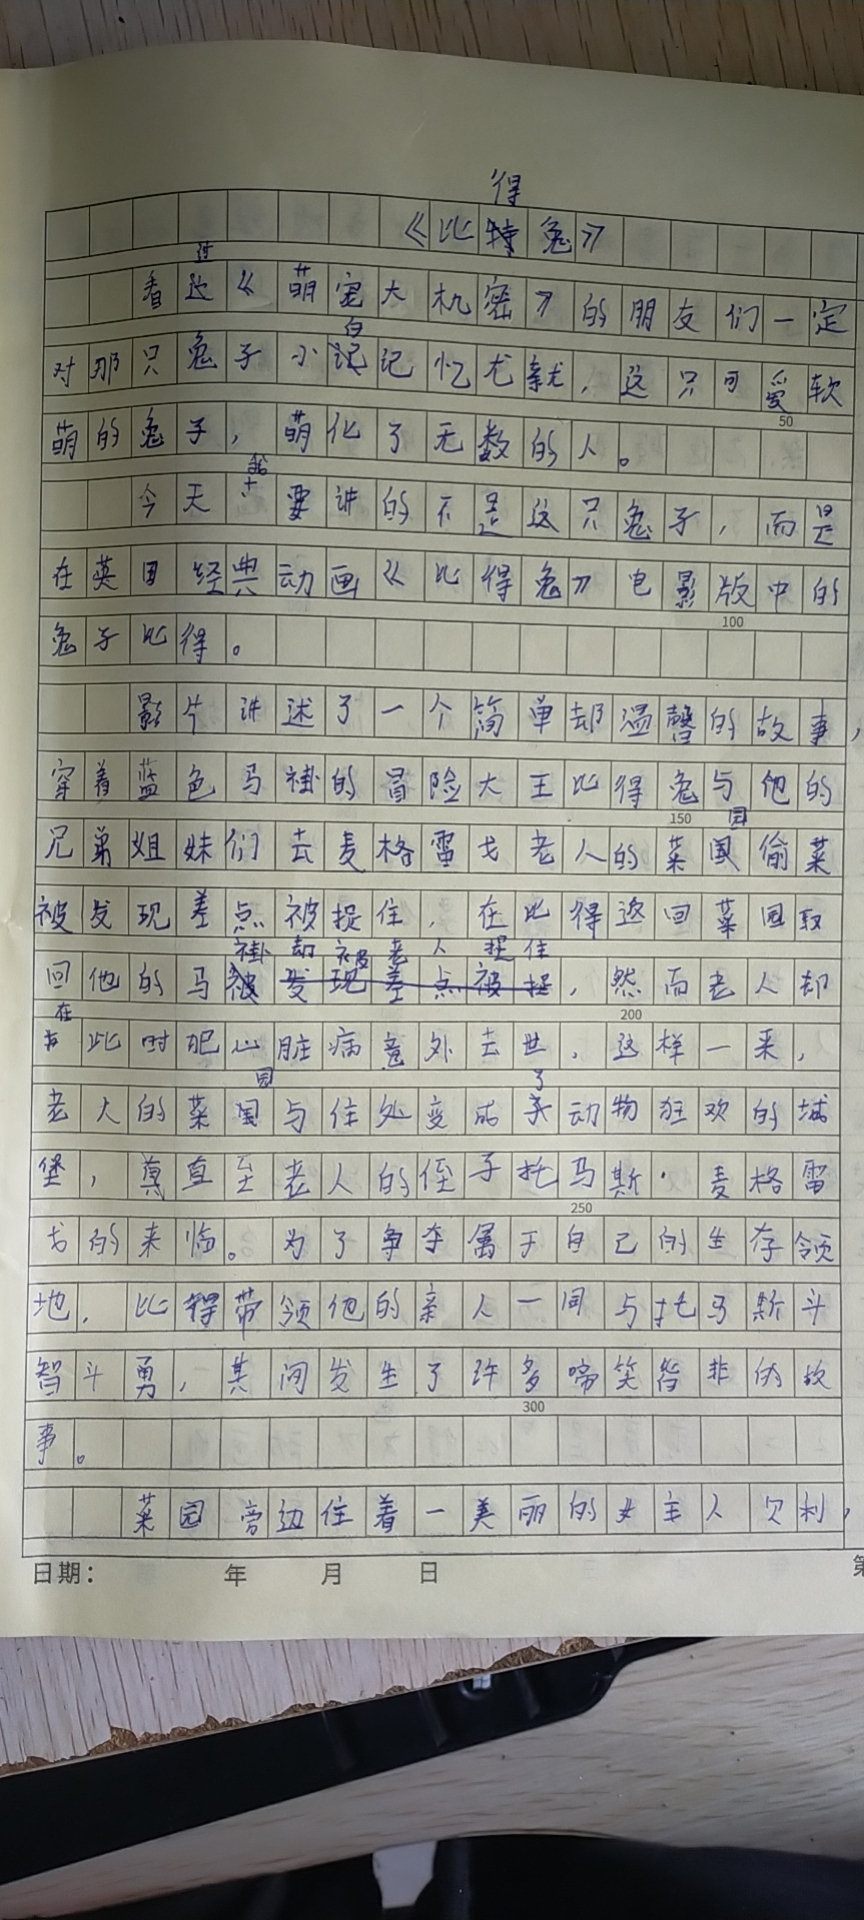 得
《比特兔》
过
看这《萌宠大机密》的朋友们一定
白
对那只兔子小记忆尤新，这只可爱软
50
萌的兔子，萌化了无数的人。
我
今天要讲的不是这只兔子，而是
在英国经典动画《比得兔》电影版中的
100
兔子比得。
影片讲述了一个简单却温馨的故事，
穿着蓝色马褂的冒险大王比得兔与他的
150 园
兄弟姐妹们去麦格雷戈老人的菜国偷菜
被发现差点被捉住，在比得返回菜园取
褂却被老人捉住
回他的马被发现差点被捉，然而老人却
在 200
此时犯心脏病意外去世，这样一来，
园 了
老人的菜国与住处变成动物狂欢的城
堡，直至老人的侄子托马斯·麦格雷
250
戈的来临。为了争夺属于自己的生存领
地，比得带领他的亲人一同与托马斯斗
智斗勇，其间发生了许多啼笑皆非的故
300
事。
菜园旁边住着一美丽的女主人贝利，
日期： 年 月 日 第